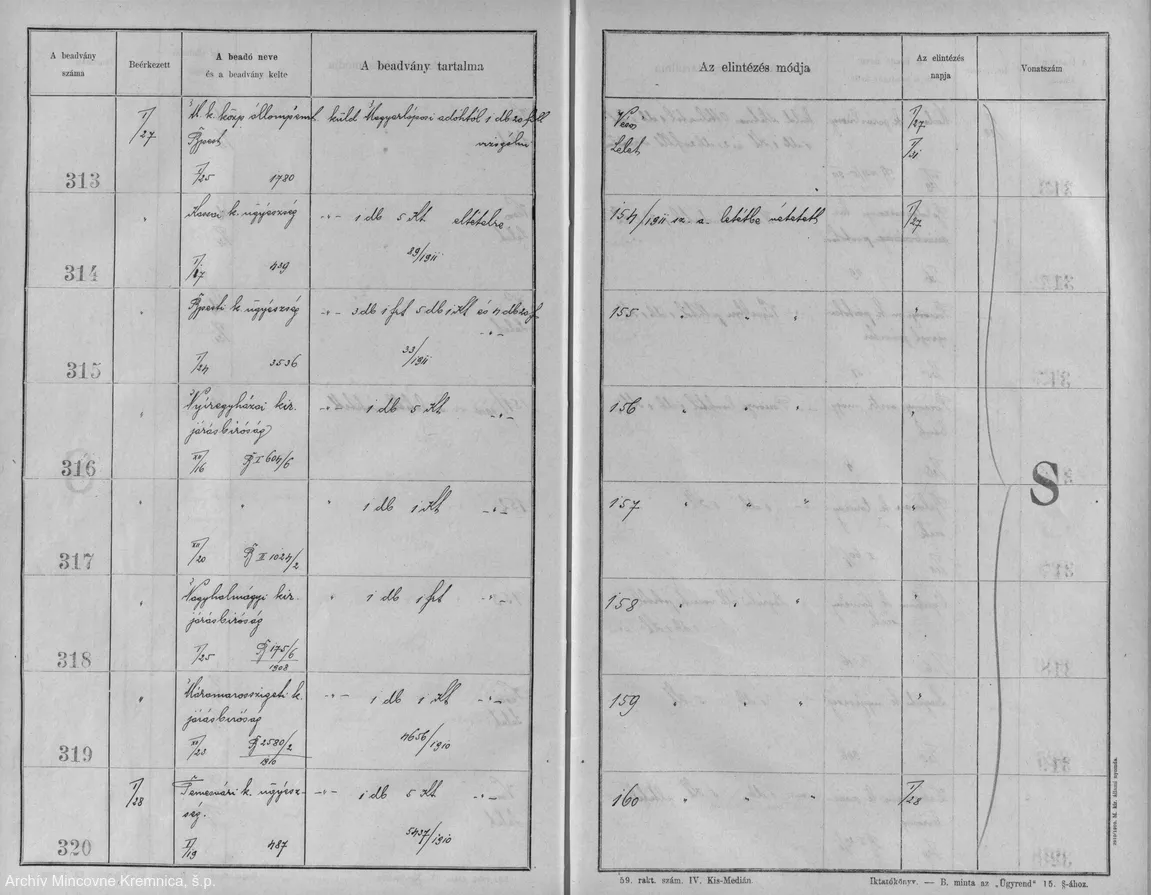 A beadvány
száma
Beérkezett
A beadó neve
és a beadvány kelte
A beadvány tartalma
Az elintézés módja
Az elintézés
napja
Vonatszám
I/27
M. k. közp. állampénzt. küld Magyarláposi adóhtól 1 db 20 fill
Bpest
vizsgálni
I/25 1780
313
Vém
Lelet
I/27
I/31
Kassai k. ügyészség
1 db 5 Kt eltételre
I/27 439
89/1911
314
154/1911 sz. a. letétbe vétetett
I/27
Bpesti k. ügyészség
3 db 1 frt 5 db 1 Kt és 4 db 20 f.
I/24 3536
33/1911
315
155 " " "
"
Nyíregyházai kir.
járásbíróság
1 db 5 Kt
XII/16 B I 604/6
316
156 " " "
"
" "
" 1 db 1 Kt
XII/20 B II 1024/2
317
157 " " "
"
Nagyhalmágyi kir.
járásbíróság
" 1 db 1 frt
I/25 B 175/6
1908
318
158 " " "
"
Máramarosszigeti k.
járásbíróság
1 db 1 Kt
XII/23 B 2580/2
1910
4656/1910
319
159 " " "
"
I/28
Temesvári k. ügyész-
ség.
1 db 5 Kt
487
5437/1910
320
160 " " "
I/28
S
59. rakt. szám. IV. Kis-Medián.
Iktatókönyv. — B. minta az „Ügyrend" 15. §-ához.
M. kir. állami nyomda.
Archiv Mincovne Kremnica, š.p.